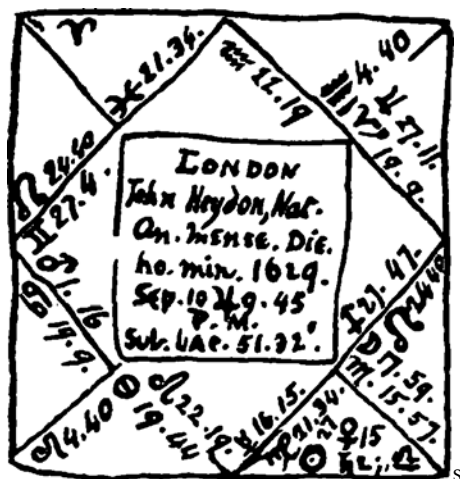 ♈
♓ 21.34.
♒ 22.19
4.40
♑ ♃ 27.11.
19.9.
☊ 24.40
♊ 27.4.
LONDON
John Heydon, Nat.
An. Mense. Die.
ho. min. 1629.
Sep. 10 ♃ 9.45
P. M.
Sub. Lat. 51.32'.
♂ 1.16
♋ 19.9.
♐ 27.47.
☋ 24.40
☽ 17.59.
♏ 15.57.
♌ 4.40
⊕ 19.44
♌ 22.19.
☿ 16.15.
♍ 21.34.
☉ 27
♀ 15
♎